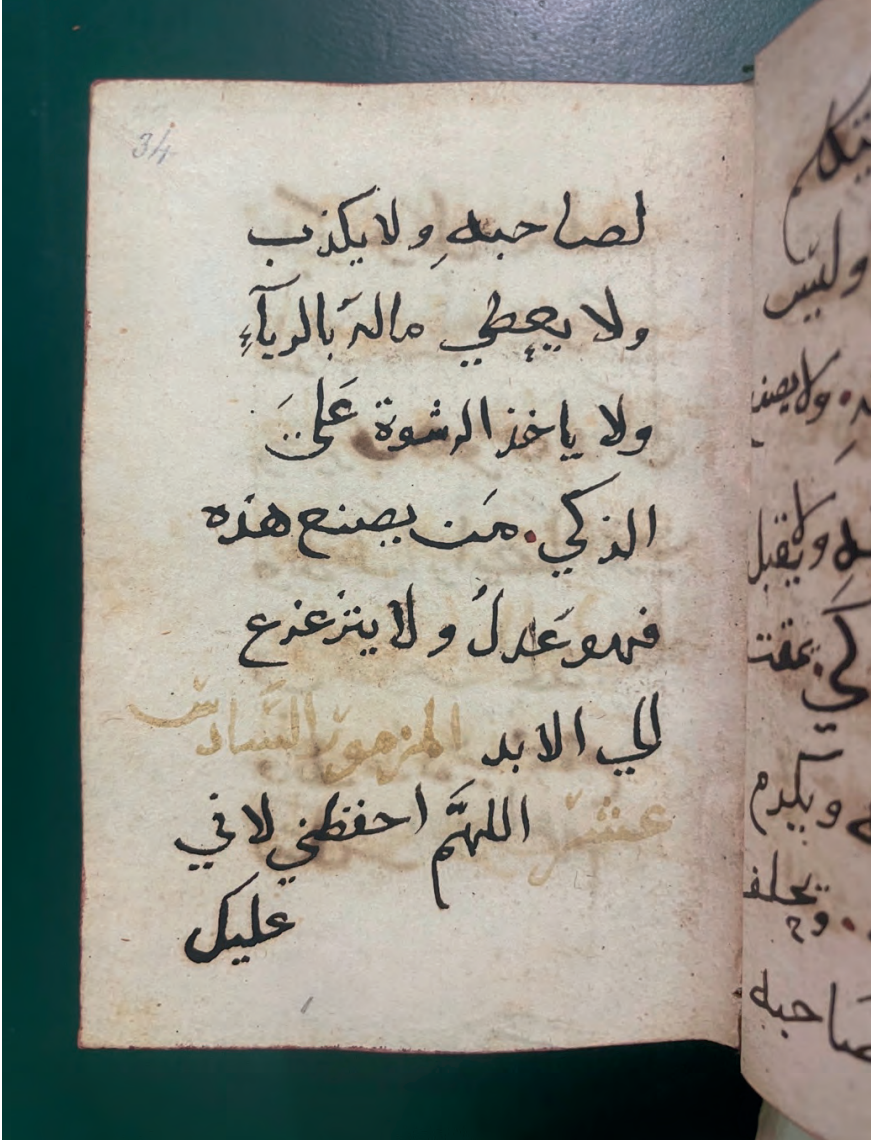 34
لصاحبهِ ولا يكذب
ولا يعطي مالهُ بالريآءِ
ولا ياخذ الرشوة عَلىَ
الذكي. مَن يصنع هذه
فهو عَدلُ ولا يتزعزع
الي الابد المزمور السَّادس
عشر اللهمَّ احفظني لاني
عليك
وليس
ولا يصنع
ولا يقبل
كي يمقت
ويكرم
ويحلف
صاحبه